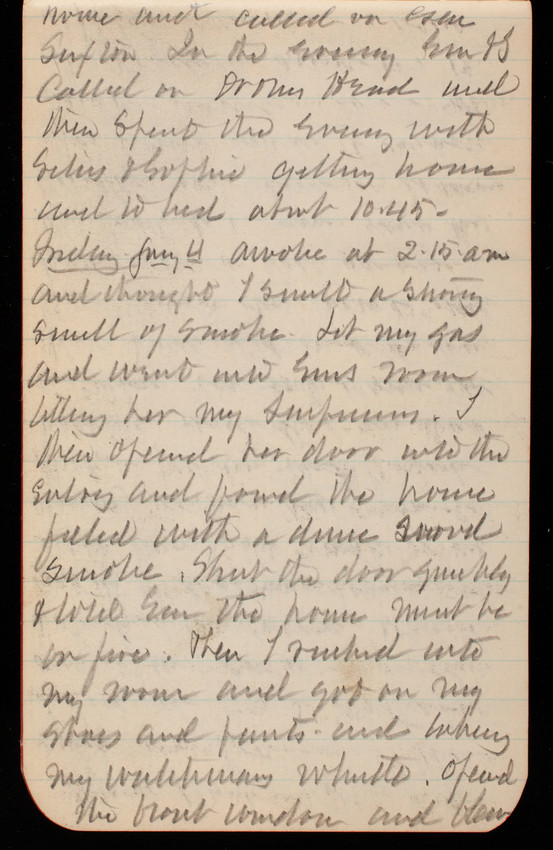 home and called on Gen
Sexton In the evening Em & I
Called on Mr Head and
then spent the evening with
Gelies & Sophie getting home
and to bed about 10.45-
Friday Jany 4 awoke at 2.15 am
and thought I smelt a strong
smell of smoke. Lit my gas
and went into Ems room
telling her my suspicions. I
then opened her door into the
entry and found the house
filled with a dense wood
smoke. Shut the door quickly
& told Em the house must be
on fire. Then I rushed into
my room and got on my
shoes and pants and taking
my watchmans whistle. Opend
the front window and blew